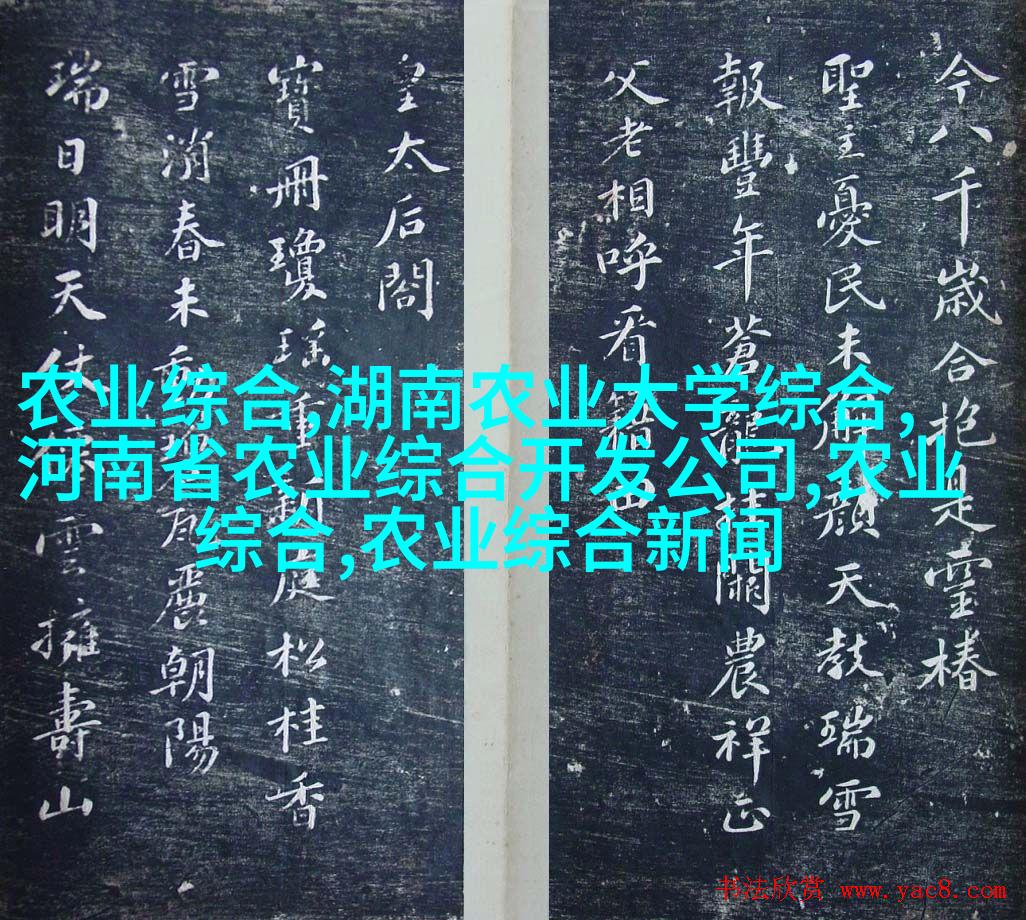 今八千歲合抱是靈椿
聖主憂民未解顏天教瑞雪
報豐年蒼龍挂闕農祥正
父老相呼看籍田
皇太后閤
寶冊瓊瑤重新庭松桂香
雪消春未動碧瓦麗朝陽
瑞日明天仗雲擁壽山
农业综合,湖南农业大学综合,
河南省农业综合开发公司,农业
综合,农业综合新闻
书法欣赏 www.yac8.com